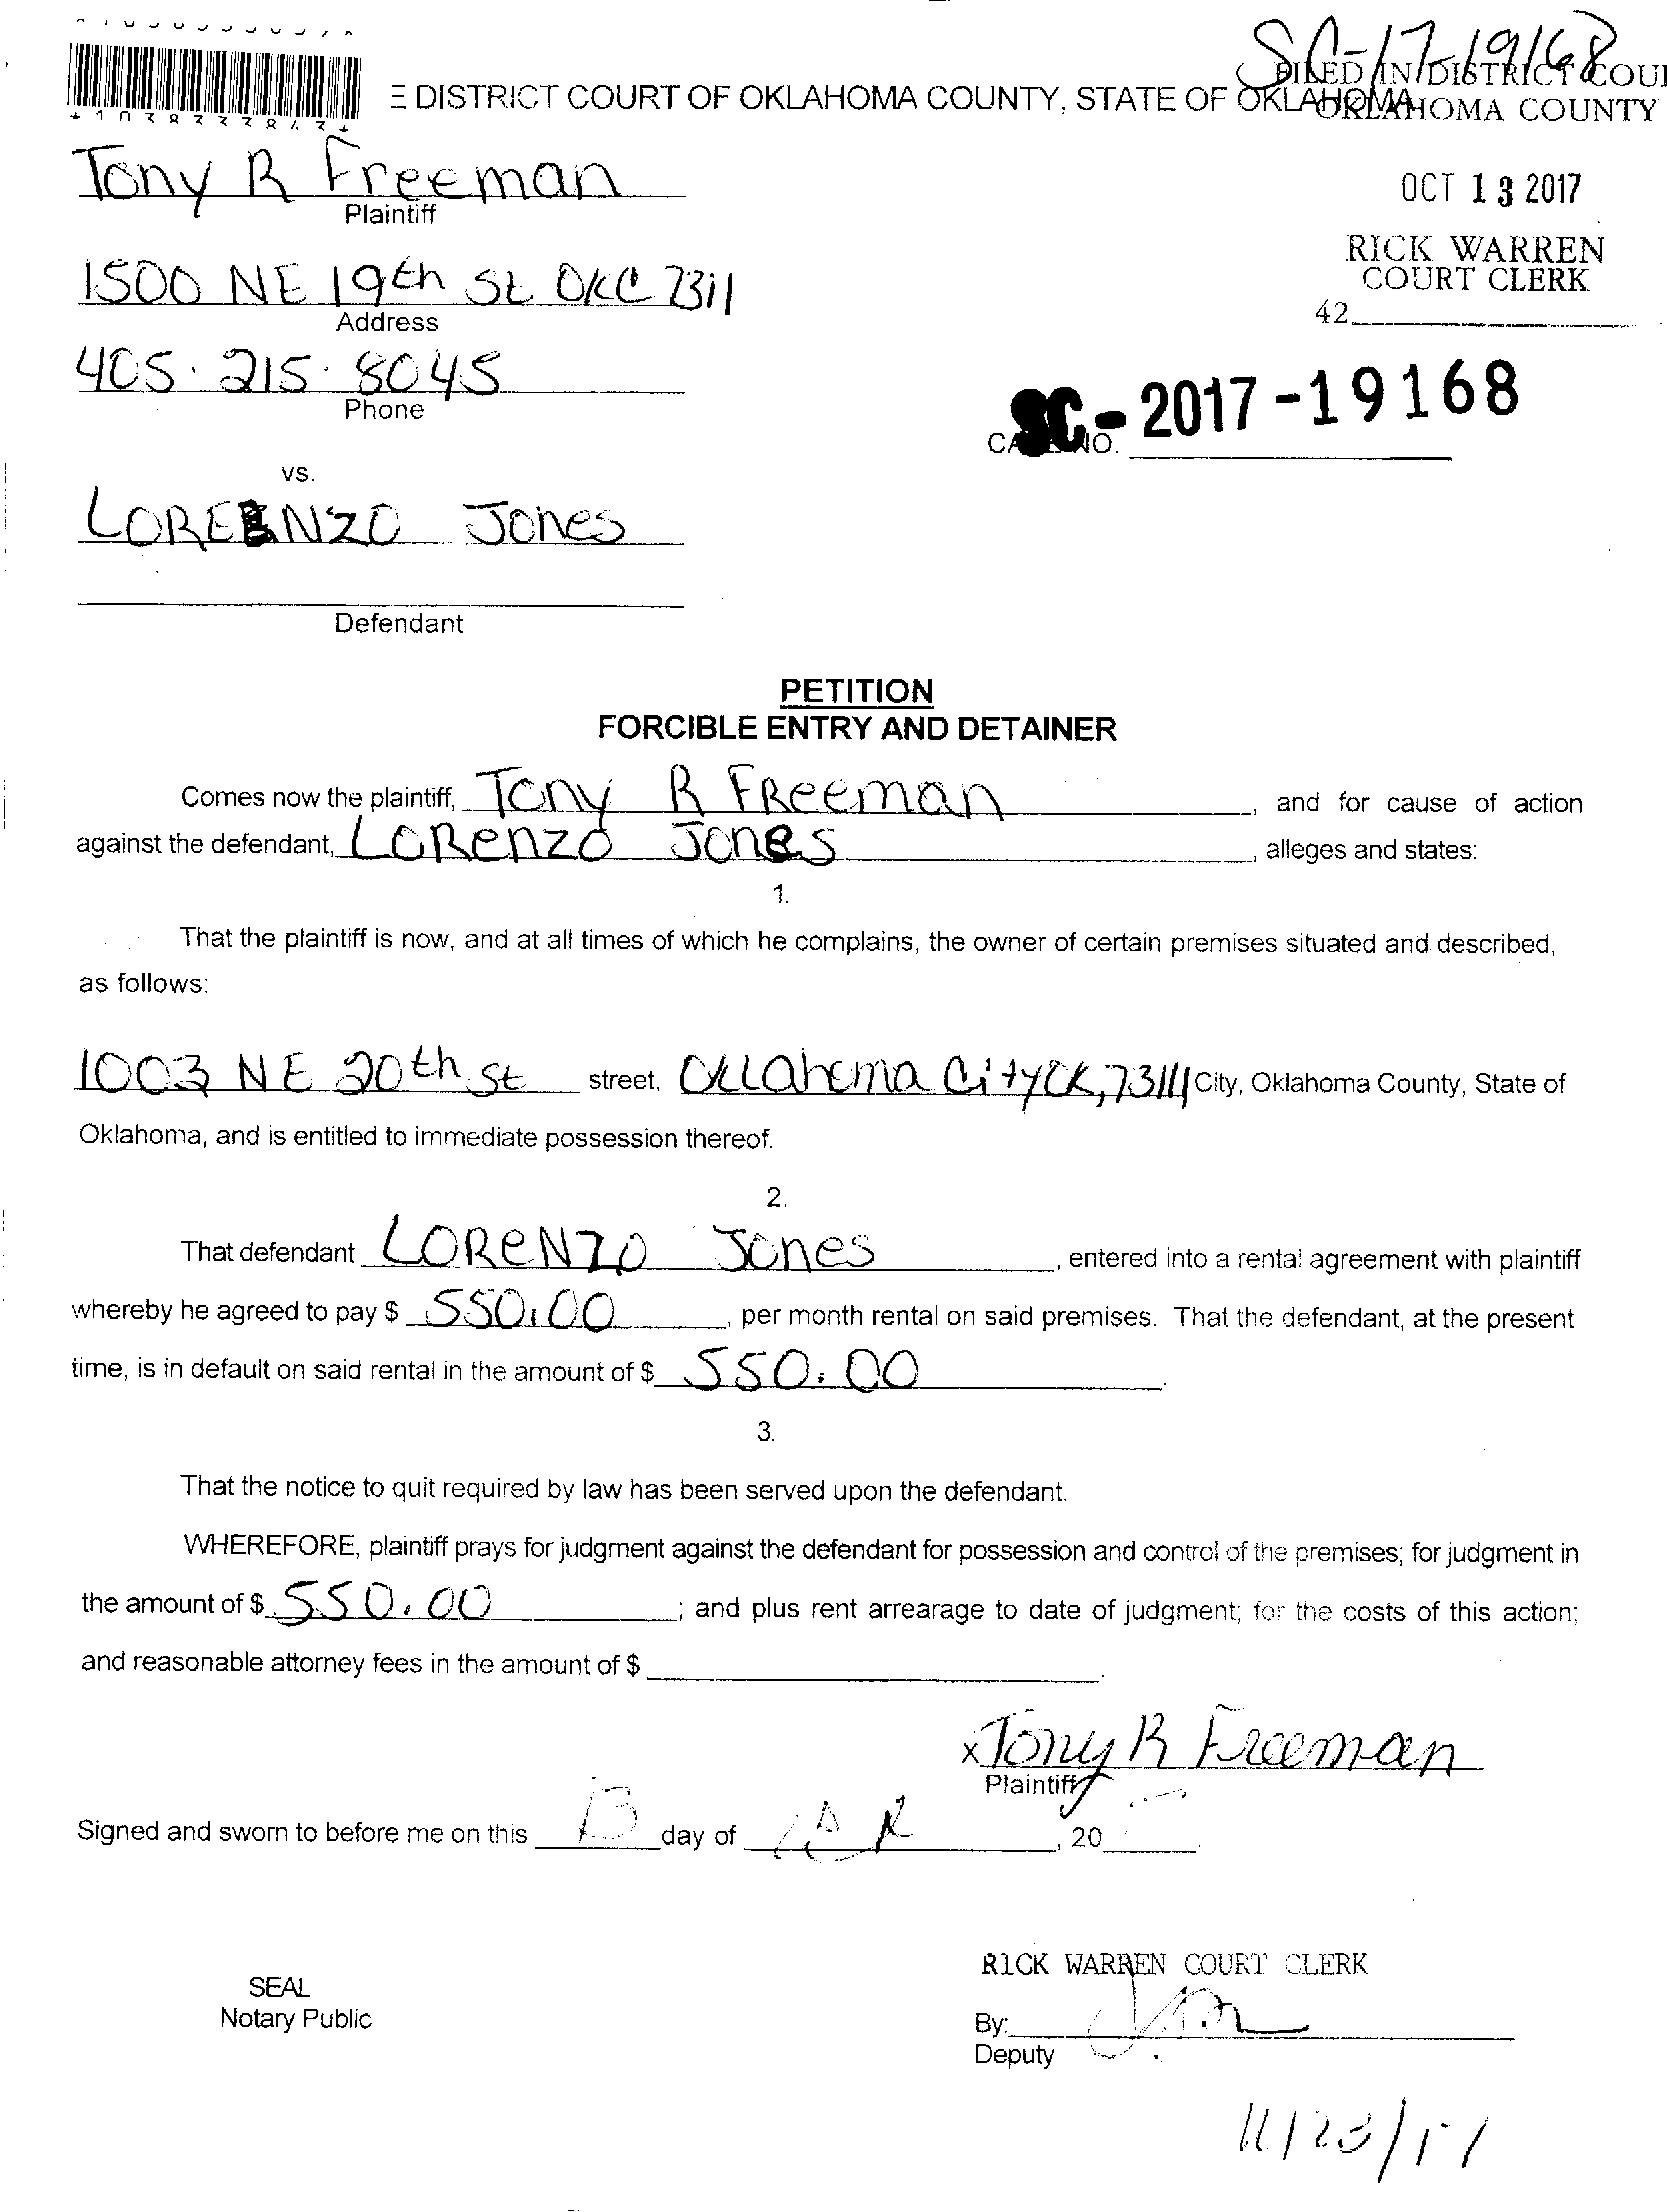 SC-17-19168
FILED IN DISTRICT COU
E DISTRICT COURT OF OKLAHOMA COUNTY, STATE OF OKLAHOMA
OKLAHOMA COUNTY
Tony R Freeman
Plaintiff
OCT 13 2017
RICK WARREN
COURT CLERK
42
1500 NE 19th St OKC 7311
Address
405.215.8045
Phone
SC-2017-19168
NO.
vs.
LORENZO Jones
Defendant
PETITION
FORCIBLE ENTRY AND DETAINER
Comes now the plaintiff, Tony R FReeman, and for cause of action
against the defendant, LORenzo Jones, alleges and states:
1.
That the plaintiff is now, and at all times of which he complains, the owner of certain premises situated and described,
as follows:
1003 NE 20th St street, Oklahoma City OK, 73111 City, Oklahoma County, State of
Oklahoma, and is entitled to immediate possession thereof.
2.
That defendant LOReNZO Jones, entered into a rental agreement with plaintiff
whereby he agreed to pay $ 550.00, per month rental on said premises. That the defendant, at the present
time, is in default on said rental in the amount of $ 550.00.
3.
That the notice to quit required by law has been served upon the defendant.
WHEREFORE, plaintiff prays for judgment against the defendant for possession and control of the premises; for judgment in
the amount of $ 550.00; and plus rent arrearage to date of judgment; for the costs of this action;
and reasonable attorney fees in the amount of $.
x Tony R Freeman
Plaintiff
Signed and sworn to before me on this 13 day of , 20
RICK WARREN COURT CLERK
SEAL
Notary Public
By:
Deputy